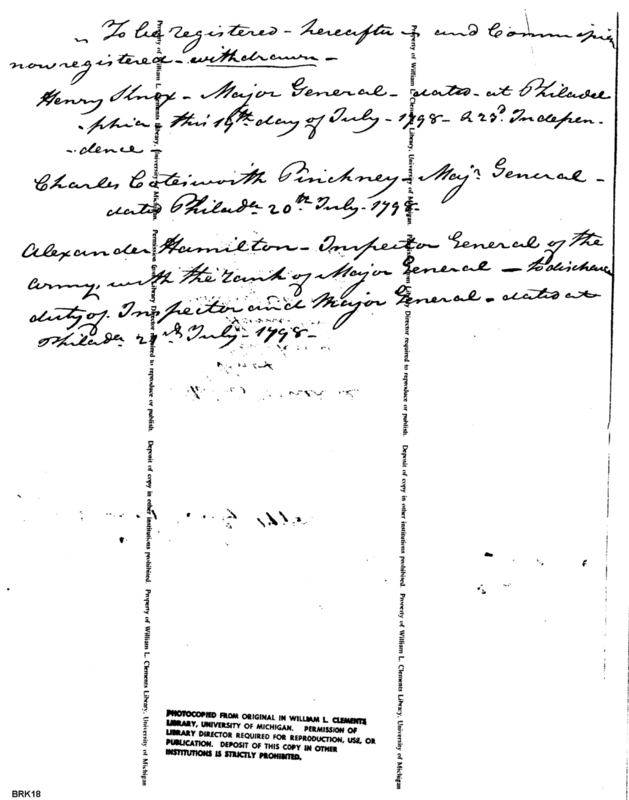 To be registered - hereafter - and Commission
now registered - withdrawn -
Henry Knox - Major General - dated - at Philadel
-phia - this 19th day of July - 1798 - & 23d. Indepen-
-dence -
Charles Cotesworth Pinckney - Majr. General -
dated Philada. 20th July - 1798
Alexander Hamilton - Inspector General of the
army, with the rank of Major General - to discharge
duty of Inspector and Major General - dated at
Philada. July - 1798 -
Property of William L. Clements Library, University of Michigan. Permission of Library Director required to reproduce or publish. Deposit of copy in other institutions prohibited. Property of William L. Clements Library, University of Michigan
Property of William L. Clements Library, University of Michigan. Permission of Library Director required to reproduce or publish. Deposit of copy in other institutions prohibited. Property of William L. Clements Library, University of Michigan
PHOTOCOPIED FROM ORIGINAL IN WILLIAM L. CLEMENTS
LIBRARY, UNIVERSITY OF MICHIGAN. PERMISSION OF
LIBRARY DIRECTOR REQUIRED FOR REPRODUCTION, USE, OR
PUBLICATION. DEPOSIT OF THIS COPY IN OTHER
INSTITUTIONS IS STRICTLY PROHIBITED.
BRK18